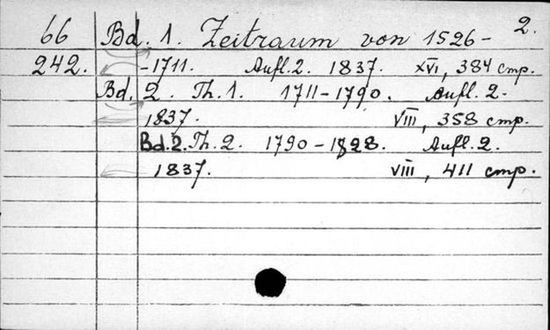 2.
66 Bd. 1. Zeitraum von 1526-
242. -1711. Aufl. 2. 1837. XVI, 384 стр.
Bd. 2. Th. 1. 1711-1790. Aufl. 2.
1837. VIII, 358 стр.
Bd. 2. Th. 2. 1790-1828. Aufl. 2.
1837. VIII, 411 стр.